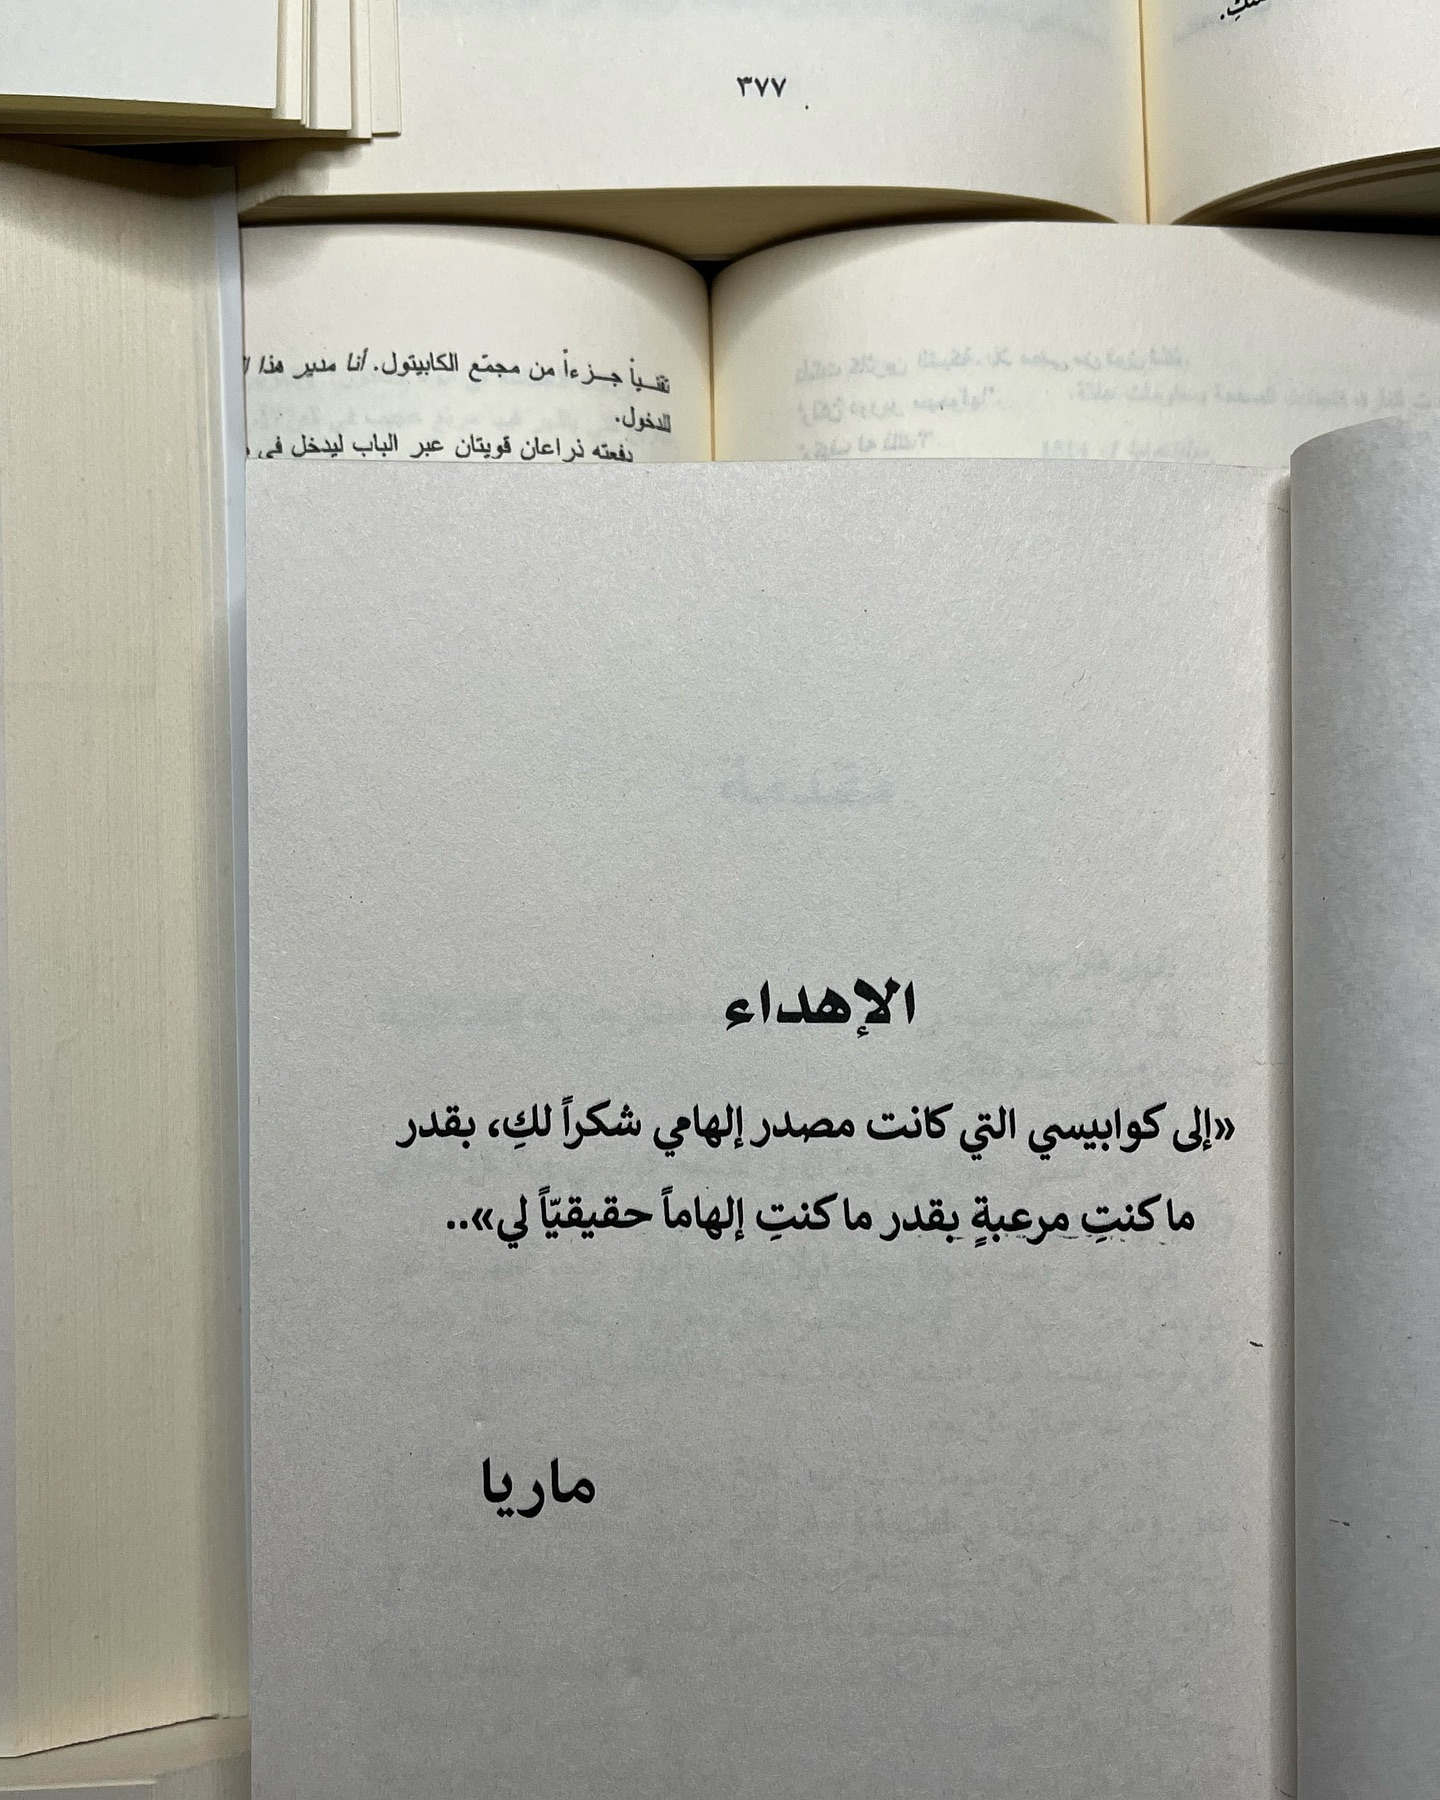 ٣٧٧
تقنـياً جـزءاً من مجمّع الكابيتول. أنا مدير هذا
للدخول.
دفعته ذراعان قويتان عبر الباب ليدخل في
الإهداء
«إلى كوابيسي التي كانت مصدر إلهامي شكراً لكِ، بقدر
ما كنتِ مرعبةٍ بقدر ما كنتِ إلهاماً حقيقيّاً لي»..
ماريا